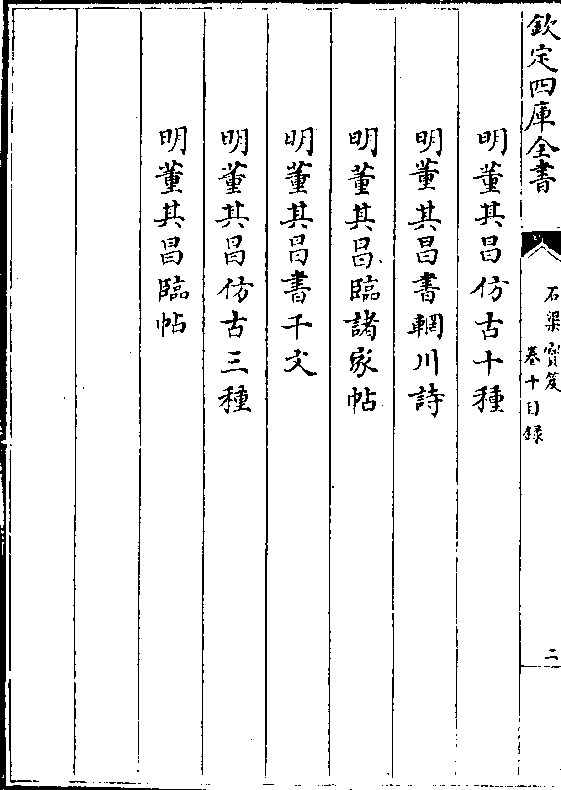 欽定四庫全書
石渠寳笈
卷十目録
二
明董其昌仿古十種
明董其昌書輞川詩
明董其昌臨諸家帖
明董其昌書千文
明董其昌仿古三種
明董其昌臨帖